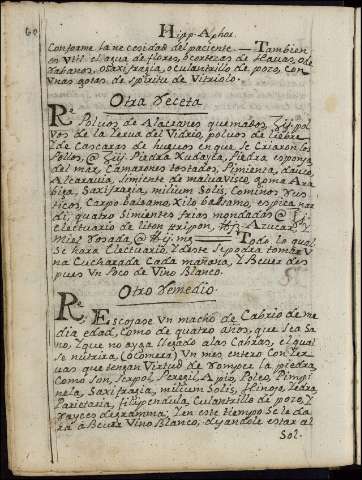 Hipp. Aphor.
Conforme la necesidad del paciente. — Tambien
es Util el agua de flores, o cortezas de Hauas, o de
Rabanos, o Saxifragia, o Culantrillo de pozo, con
Unas gotas de Spiritu de Vitriolo.
Otra Receta
Re. Polvos de Alacranes quemados, ʒij. pol-
vos de la Yerua del Vidrio, polvos de liebre
y de Cascaras de huevos en que se Criaron los
Pollos, @ ʒij. Piedra Xudayca, Piedra esponja
del mar, Camarones tostados, Pimienta, dauco,
Alcarauia, simiente de maluavisco, goma Ara-
biga, Saxifragia, milium Solis, Cominos rus-
ticos, Carpobalsamo, Xilobalsamo, espica nar-
di, quatro Simientes frias mondadas @
Electuario de liton tripon, Azucar y
Miel rosada @ Todo lo qual
Se hara Electuario, y de este se podra tomar U-
na Cucharada Cada mañana, y Beuer des-
pues Un Poco de Vino Blanco.
Otro Remedio.
Re. Escojase Un macho de Cabrio de me-
dia edad, como de quatro años, que sea Sa-
no, y que no ayga llegado alas Cabras, el qual
se nutrira, (o comera) Un mes entero Con Yer-
uas que tengan Virtud de romper la piedra,
Como son, Serpol, Peregil, Apio, Poleo, Pimpi-
nela, Saxifragia, milium Solis, Henojo, Yedra,
Parietaria, filipendula, Culantrillo de pozo, Y
rayces de gramma; Y en este tiempo Se le da-
rá a Beuer Vino Blanco, dejandole estar al
Sol.